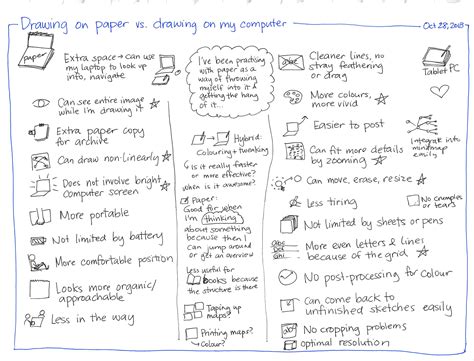 Drawing on paper vs. drawing on my computer
Oct 28, 2013
paper
Extra space → can use
my laptop to look up
info, navigate
Can see entire image
while I'm drawing it
Extra paper copy
for archive
Can draw non-linearly
Does not involve bright
computer screen
More portable
Not limited by battery
More comfortable position
Looks more organic/
approachable
Less in the way
I've been practicing
with paper as a
way of throwing
myself into it &
getting the hang
of it...
Hybrid:
Colouring + tweaking
Is it really faster
or more effective?
when is it awesome?
Paper:
Good for when
I'm thinking
about something
because then I
can jump around
or get an overview
Less useful for
books because
the structure is there
Taping up
maps?
Printing maps?
↳ Colour?
Tablet PC
Cleaner lines, no
stray feathering
or drag
More colours,
more vivid
Easier to post
Integrate into
mindmap
easily
Can fit more details
by zooming
Can move, erase, resize
Less tiring
No crumples
or tears
Not limited by sheets or pens
More even letters & lines
because of the grid
No post-processing for colour
Can come back to
unfinished sketches easily
No cropping problems
optimal resolution